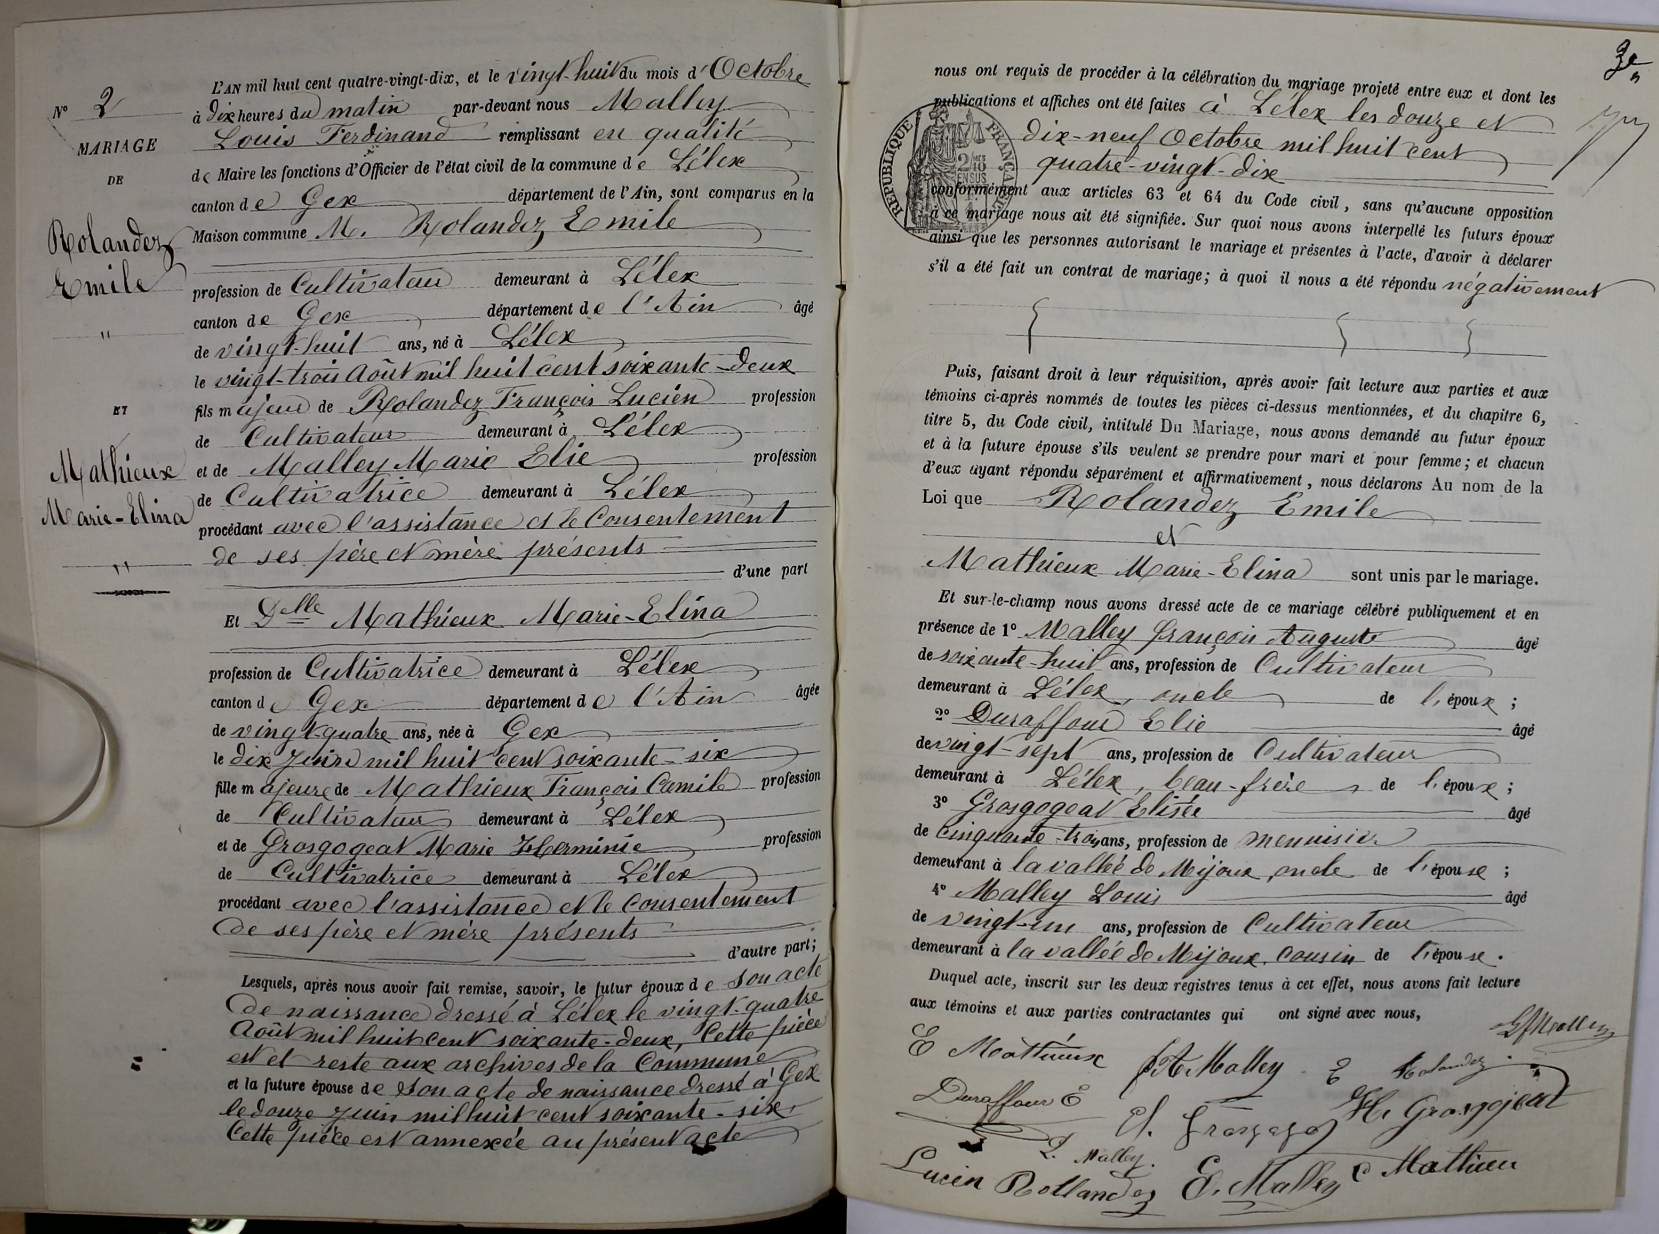 N° 2
MARIAGE
DE
Rolandez
Emile
"
ET
Mathieux
Marie-Elina
"
L'AN mil huit cent quatre-vingt-dix, et le vingt-huit du mois d'Octobre
à dix heures du matin par-devant nous Malley
Louis Ferdinand remplissant en qualité
de Maire les fonctions d'Officier de l'état civil de la commune de Lélex
canton de Gex département de l'Ain, sont comparus en la
Maison commune M. Rolandez Emile
profession de Cultivateur demeurant à Lélex
canton de Gex département de l'Ain âgé
de vingt-huit ans, né à Lélex
le vingt-trois Août mil huit cent soixante-deux
fils majeur de Rolandez François Lucien profession
de Cultivateur demeurant à Lélex
et de Malley Marie Elie profession
de Cultivatrice demeurant à Lélex
procédant avec l'assistance et le Consentement
de ses père et mère présents
d'une part
Et Delle Mathieux Marie-Elina
profession de Cultivatrice demeurant à Lélex
canton de Gex département de l'Ain âgée
de vingt-quatre ans, née à Gex
le dix Juin mil huit cent soixante-six
fille majeure de Mathieux François Camile profession
de Cultivateur demeurant à Lélex
et de Grosgogeat Marie Herminie profession
de Cultivatrice demeurant à Lélex
procédant avec l'assistance et le Consentement
de ses père et mère présents
d'autre part;
Lesquels, après nous avoir fait remise, savoir, le futur époux de son acte
de naissance dressé à Lélex le vingt-quatre
Août mil huit cent soixante-deux, Cette pièce
est et reste aux archives de la Commune
et la future épouse de son acte de naissance dressé à Gex
le douze Juin mil huit cent soixante-six.
Cette pièce est annexée au présent acte
3e
nous ont requis de procéder à la célébration du mariage projeté entre eux et dont les
publications et affiches ont été faites à Lélex les douze et
dix-neuf Octobre mil huit cent
quatre-vingt-dix
RÉPUBLIQUE FRANÇAISE
conformément aux articles 63 et 64 du Code civil, sans qu'aucune opposition
à ce mariage nous ait été signifiée. Sur quoi nous avons interpellé les futurs époux
ainsi que les personnes autorisant le mariage et présentes à l'acte, d'avoir à déclarer
s'il a été fait un contrat de mariage; à quoi il nous a été répondu négativement
Puis, faisant droit à leur réquisition, après avoir fait lecture aux parties et aux
témoins ci-après nommés de toutes les pièces ci-dessus mentionnées, et du chapitre 6,
titre 5, du Code civil, intitulé Du Mariage, nous avons demandé au futur époux
et à la future épouse s'ils veulent se prendre pour mari et pour femme; et chacun
d'eux ayant répondu séparément et affirmativement, nous déclarons Au nom de la
Loi que Rolandez Emile
et
Mathieux Marie-Elina sont unis par le mariage.
Et sur-le-champ nous avons dressé acte de ce mariage célébré publiquement et en
présence de 1° Malley François Auguste âgé
de soixante-huit ans, profession de Cultivateur
demeurant à Lélex, oncle de l'époux;
2° Duraffour Elie âgé
de vingt-sept ans, profession de Cultivateur
demeurant à Lélex, beau-frère de l'époux;
3° Grosgogeat Elisée âgé
de cinquante-trois ans, profession de menuisier
demeurant à la vallée de Mijoux, oncle de l'épouse;
4° Malley Louis âgé
de vingt-un ans, profession de Cultivateur
demeurant à la vallée de Mijoux, cousin de l'épouse.
Duquel acte, inscrit sur les deux registres tenus à cet effet, nous avons fait lecture
aux témoins et aux parties contractantes qui ont signé avec nous,
E Mathieux fA Malley E Rolandez
Duraffour E H. Grosgojeat
L. Malley.
Lucien Rollandez E. Malley C Mathieu